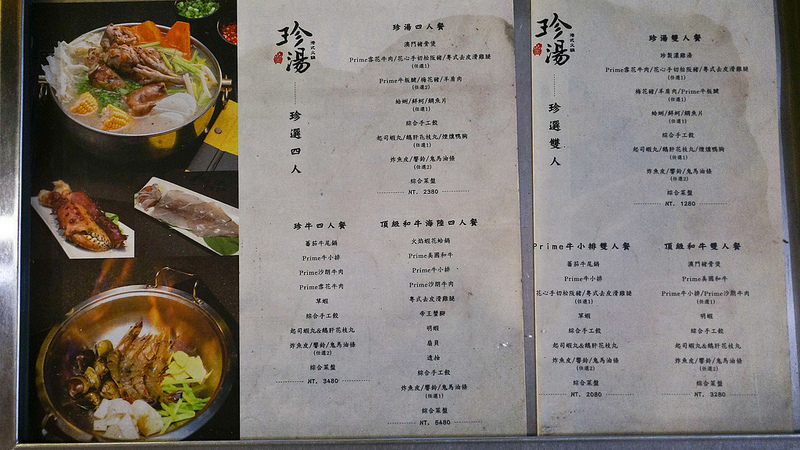 珍湯
港式火鍋
珍選四人
珍湯四人餐
澳門豬骨煲
Prime雪花牛肉/花心手切松阪豬/粵式去皮滑雞腿
(任選1)
Prime牛板腱/梅花豬/羊肩肉
(任選2)
蛤蜊/鮮蚵/鯛魚片
(任選1)
綜合手工餃
起司蝦丸/鵝肝花枝丸/煙燻鴨胸
(任選1)
炸魚皮/響鈴/鬼馬油條
(任選2)
綜合菜盤
NT. 2380
珍牛四人餐
蕃茄牛尾鍋
Prime牛小排
Prime沙朗牛肉
Prime雪花牛肉
草蝦
綜合手工餃
起司蝦丸&鵝肝花枝丸
炸魚皮/響鈴/鬼馬油條
(任選2)
綜合菜盤
NT. 3480
頂級和牛海陸四人餐
火焰蝦花蛤鍋
Prime美國和牛
Prime牛小排
Prime沙朗牛肉
粵式去皮滑雞腿
帝王蟹腳
明蝦
扇貝
透抽
綜合手工餃
炸魚皮/響鈴/鬼馬油條
(任選1)
綜合菜盤
NT. 5480
珍湯
港式火鍋
珍選雙人
珍湯雙人餐
珍製濃雞湯
Prime雪花牛肉/花心手切松阪豬/粵式去皮滑雞腿
(任選1)
梅花豬/羊肩肉/Prime牛板腱
(任選1)
蛤蜊/鮮蚵/鯛魚片
(任選1)
綜合手工餃
起司蝦丸/鵝肝花枝丸/煙燻鴨胸
(任選1)
炸魚皮/響鈴/鬼馬油條
(任選1)
綜合菜盤
NT. 1280
Prime牛小排雙人餐
蕃茄牛尾鍋
Prime牛小排
花心手切松阪豬/粵式去皮滑雞腿
(任選1)
草蝦
綜合手工餃
起司蝦丸&鵝肝花枝丸
炸魚皮/響鈴/鬼馬油條
(任選2)
綜合菜盤
NT. 2080
頂級和牛雙人餐
澳門豬骨煲
Prime美國和牛
Prime牛小排/Prime沙朗牛肉
(任選1)
明蝦
綜合手工餃
起司蝦丸&鵝肝花枝丸
炸魚皮/響鈴/鬼馬油條
(任選2)
綜合菜盤
NT. 3280